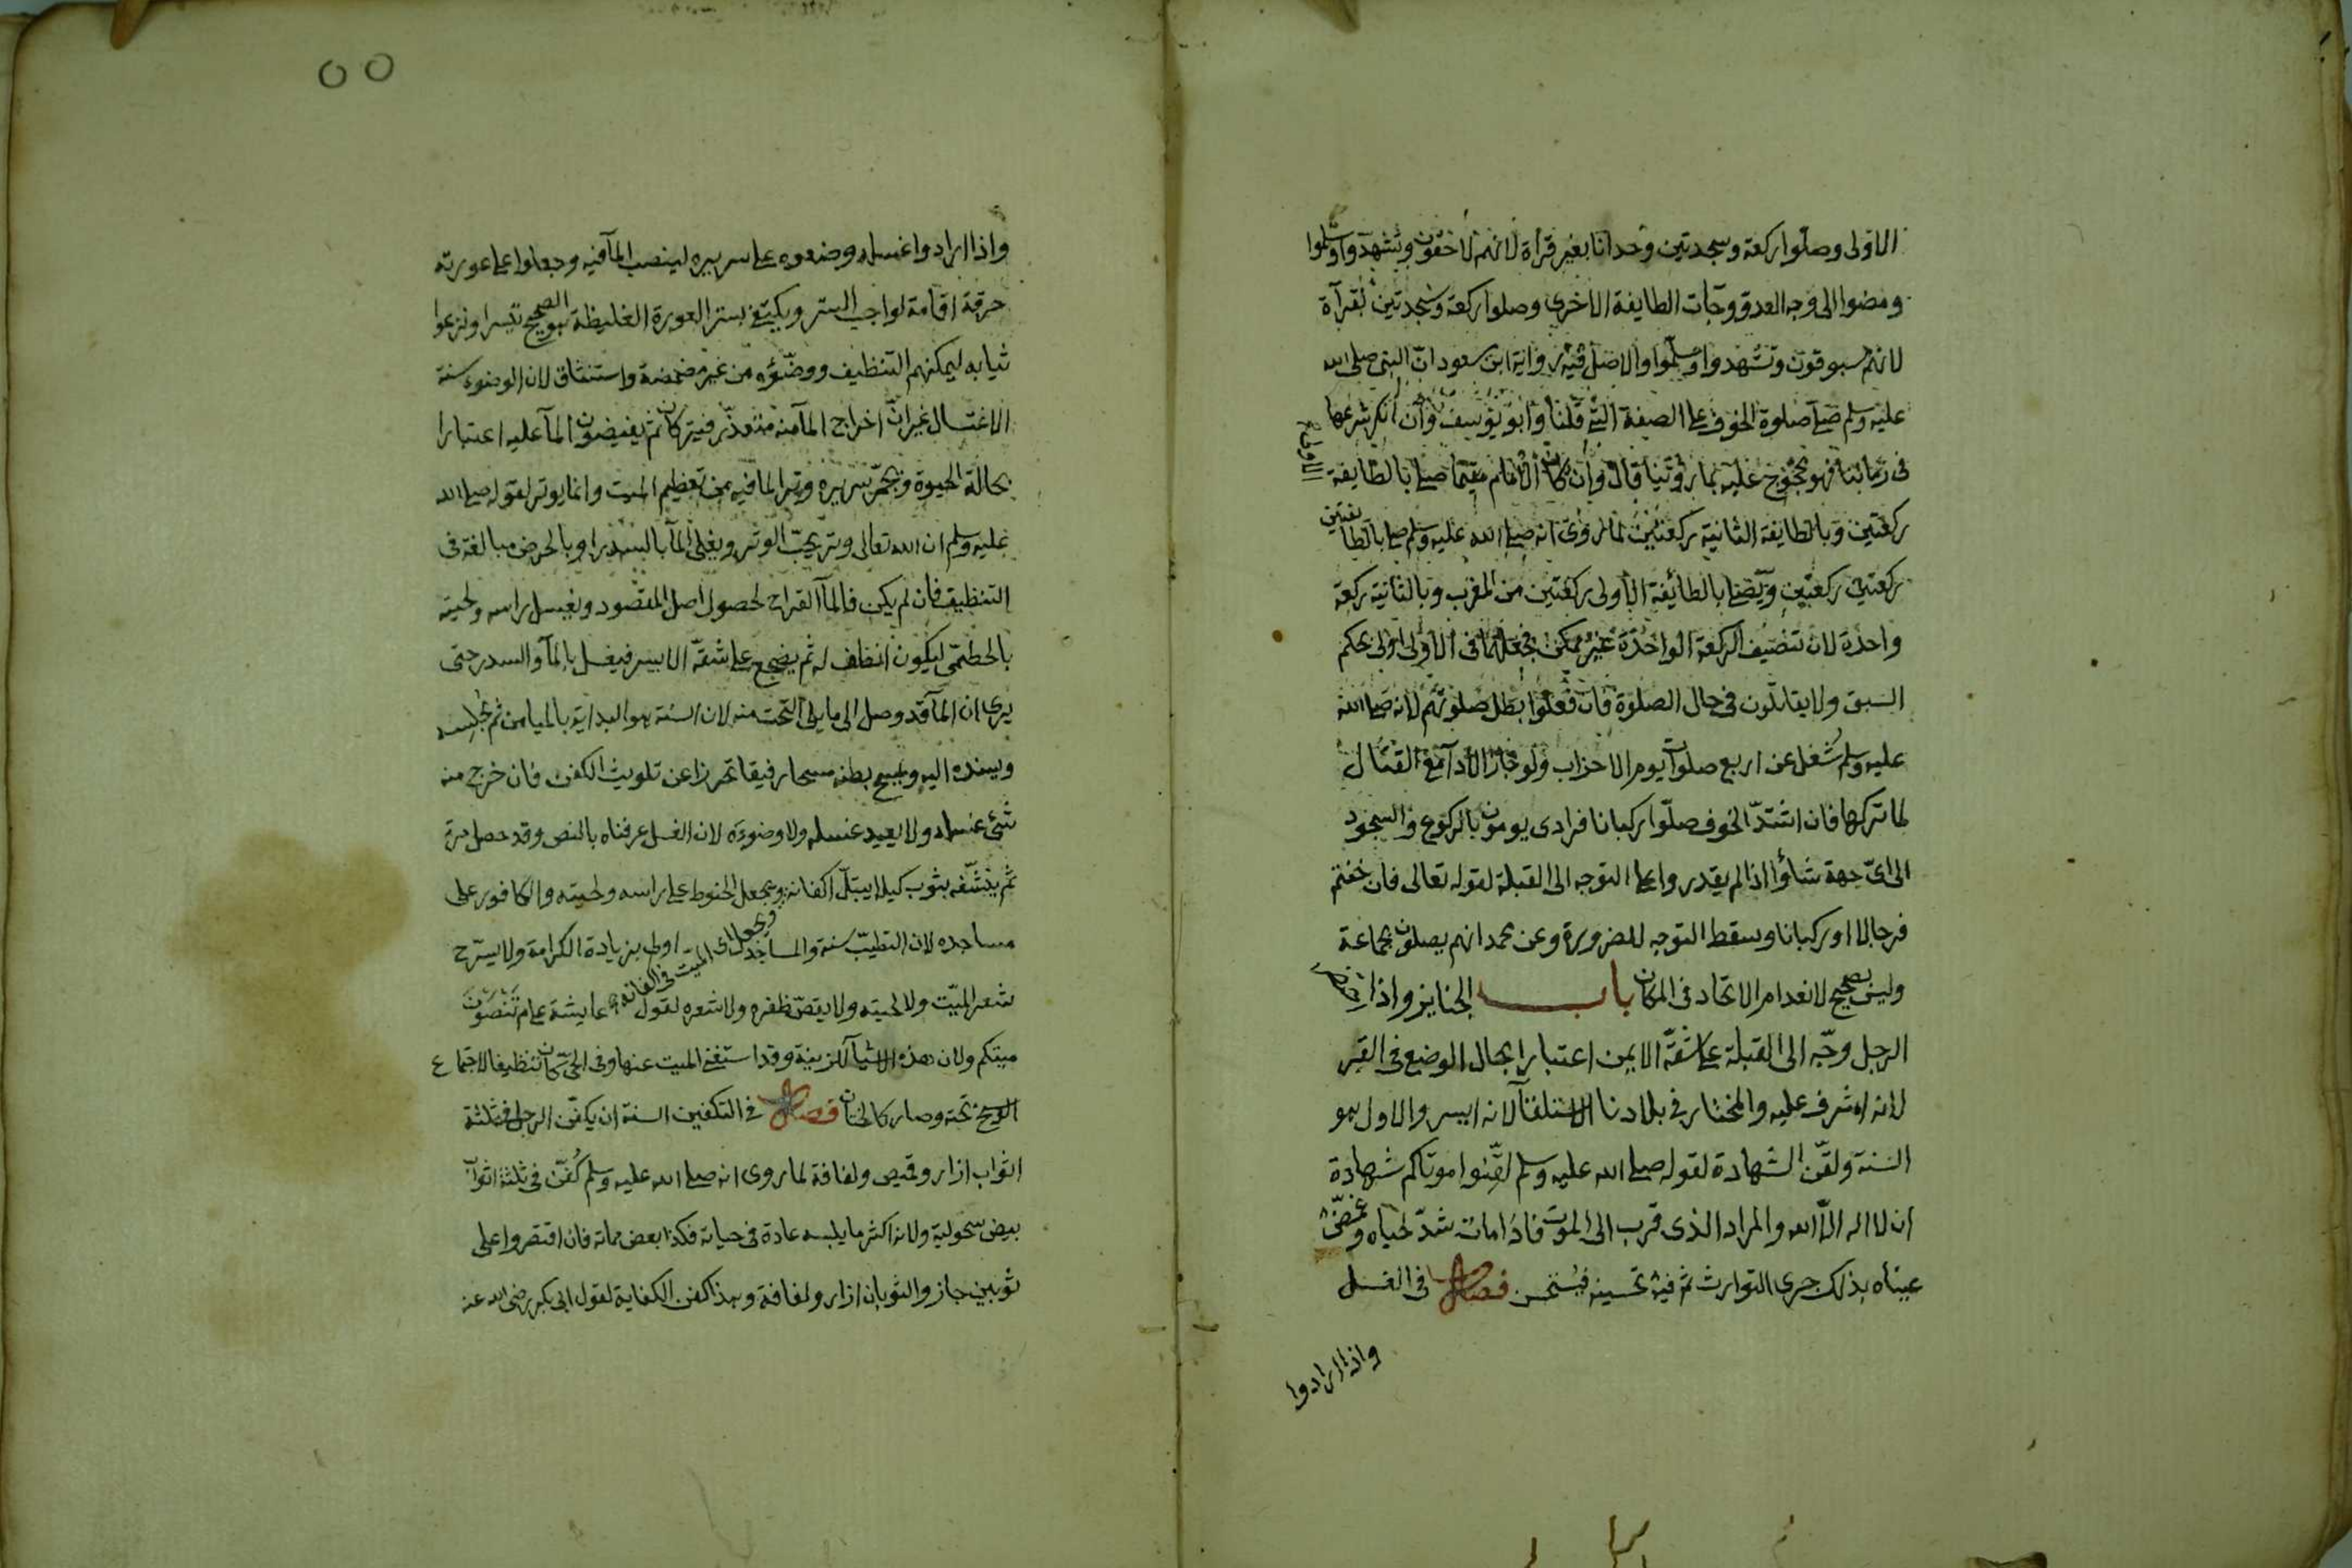 الاولى وصلوا ركعة وسجدتين وحدانا بغير قرأة لانهم لاحقون وتشهدوا وسلموا
ومضوا الى وجه العدو وجآت الطايفة الاخرى وصلوا ركعة وسجدتين بقرآة
لانهم مسبوقون وتشهدوا وسلموا والاصل فيه رواية ابن مسعود انّ النبى صلى الله
عليه وسلم صلى صلوة الخوف على الصفة التى قلنا وابو يوسف وان انكر شرعيتها
فى زماننا فهو محجوج عليه بما روينا قال وان كان الامام مقيما صلى بالطايفة الاولى
ركعتين وبالطايفة الثانية ركعتين لما روى انه صلى الله عليه وسلم صلى بالطائفتين
ركعتين ركعتين ويصلى بالطائفة الاولى ركعتين من المغرب وبالثانية ركعة
واحدة لان تنصيف الركعة الواحدة غير ممكن فجعلها فى الاولى اولى بحكم
السبق ولا يقاتلون فى حال الصلوة فان فعلوا بطل صلوتهم لانه صلى الله
عليه وسلم شُغل عن اربع صلوات يوم الاحزاب ولو جاز الادآ مع القتال
لما تركها فان اشتدّ الخوف صلّوا ركبانا فرادى يومون بالركوع والسجود
الى اىّ جهة شاؤا اذا لم يقدروا على التوجه الى القبلة لقوله تعالى فان خفتم
فرجالا او ركبانا وسقط التوجه للضرورة وعن محمد انهم يصلون بجماعة
وليس بصحيح لانعدام الاتحاد فى المكان باب الجنايز واذا احتضر
الرجل وجّه الى القبلة على شقّه الايمن اعتبارا بحال الوضع فى القبر
لانه اشرف عليه والمختار فى بلادنا الاستلقآ لانه ايسر والاول هو
السنة ولقّن الشهادة لقوله صلى الله عليه وسلم لقّنوا موتاكم شهادة
ان لا اله الّا الله والمراد الذى قرب الى الموت فاذا مات شدّ لحياه وغمّض
عيناه بذلك جرى التوارث ثم فيه تحسينه فيستحسن فصل فى الغسل
واذا ارادوا
٥٥
واذا ارادوا غسله وضعوه على سرير لينصب المآ فيه وجعلوا على عورته
خرقة اقامة لواجب الستر ويكتفى بستر العورة الغليظة هو الصحيح تيسرا ونزعوا
ثيابه ليمكنهم التنظيف ووضّؤه من غير مضمضة واستنشاق لان الوضوء سنة
الاغتسال غير انّ اخراج المآ منه متعذّر فيتركان ثم يفيضون المآ عليه اعتبارا
بحالة الحيوة ويجمّر سريره وترا لما فيه من تعظيم الميت وانما يوتر لقوله صلى الله
عليه وسلم ان الله تعالى وتر يحبّ الوتر ويغلى المآ بالسدر او بالحرض مبالغة فى
التنظيف فان لم يكن فالمآ القراح لحصول اصل المقصود ويغسل راسه ولحيته
بالخطمّى ليكون انظف له ثم يضجع على شقّه الايسر فيغسل بالمآ والسدر حتى
يرى ان المآ قد وصل الى ما يلى التخت منه لان السنة هو البداية بالميامن ثم يجلسه
ويسنده اليه ويمسح بطنه مسحا رفيقا تحرزا عن تلويث الكفن فان خرج منه
شئ غسله ولا يعيد غسله ولا وضوءه لان الغسل عرفناه بالنص وقد حصل مرة
ثم ينشّفه بثوب كيلا يبتلّ اكفانه ويجعل الحنوط على راسه ولحيته والكافور على
ويجعله اى الميت فى اكفانه
مساجده لان التطيّب سنة والمساجد اولى بزيادة الكرامة ولا يسرّح
شعر الميّت ولا لحيته ولا يقصّ ظفره ولا شعره لقول عايشة علام تنصون
ميتكم ولان هذه الاشيآ للزينة وقد استغنى الميت عنها وفى الحىّ كان تنظيفا لاجتماع
الوسخ تحته وصار كالختان فصل فى التكفين السنة ان يكفّن الرجل فى ثلثة
اثواب ازار وقميص ولفافة لما روى انه صلى الله عليه وسلم كُفّن فى ثلثة اثواب
بيض سحولية ولانه اكثر ما يلبسه عادة فى حياته فكذا بعض مماته فان اقتصروا على
ثوبين جاز والثوبان ازار ولفافة وهذا كفن الكفاية لقول ابى بكر رضى الله عنه